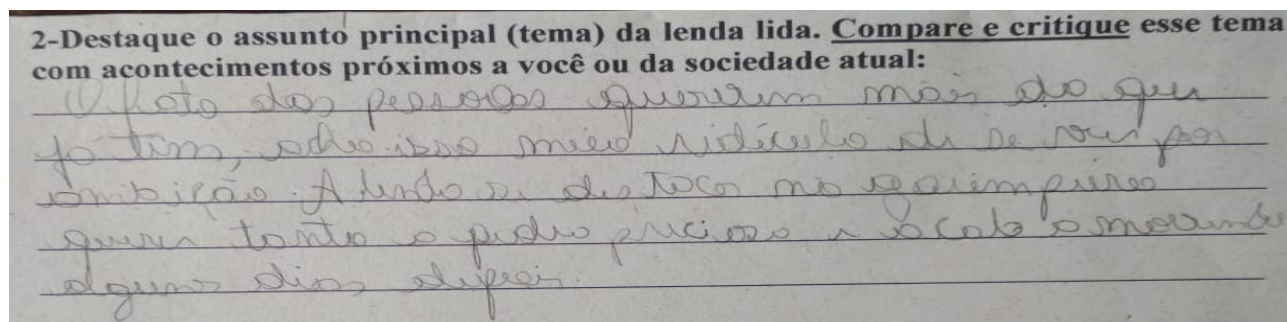 2-Destaque o assunto principal (tema) da lenda lida. Compare e critique esse tema
com acontecimentos próximos a você ou da sociedade atual:
O fato das pessoas quererem mais do que
já tem, acho isso meio ridículo de se por
ambição. A lenda se destaca no garimpeiro
querer tanto a pedra preciosa e acaba morrendo
alguns dias depois.